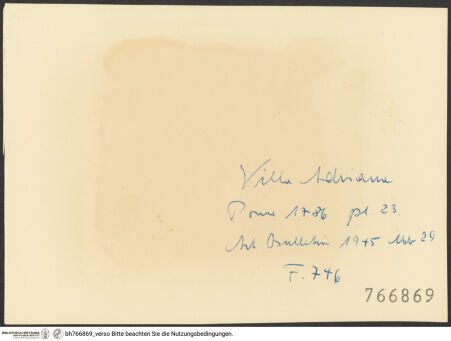 Villa Adriana
Ponce 1786 pl. 23.
Art Bulletin 1945 Abb 29
F. 746
766869
BIBLIOTHECA HERTZIANA
bh766869_verso Bitte beachten Sie die Nutzungsbedingungen.